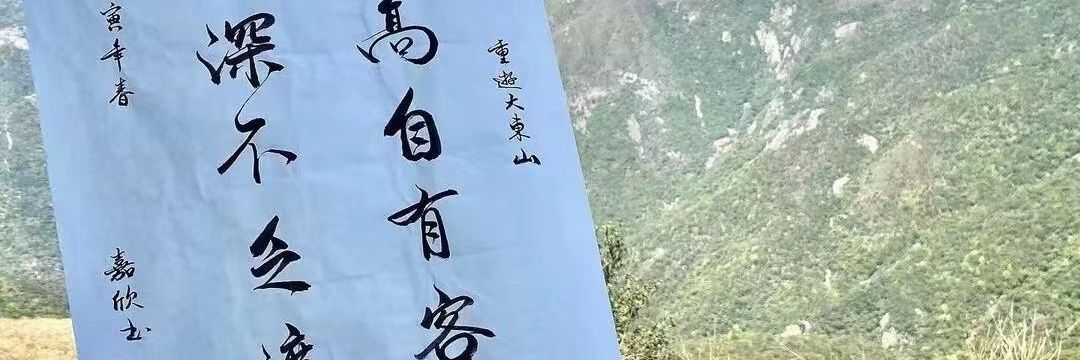 重遊大東山
高自有客
深不乏
寅年春
嘉欣书